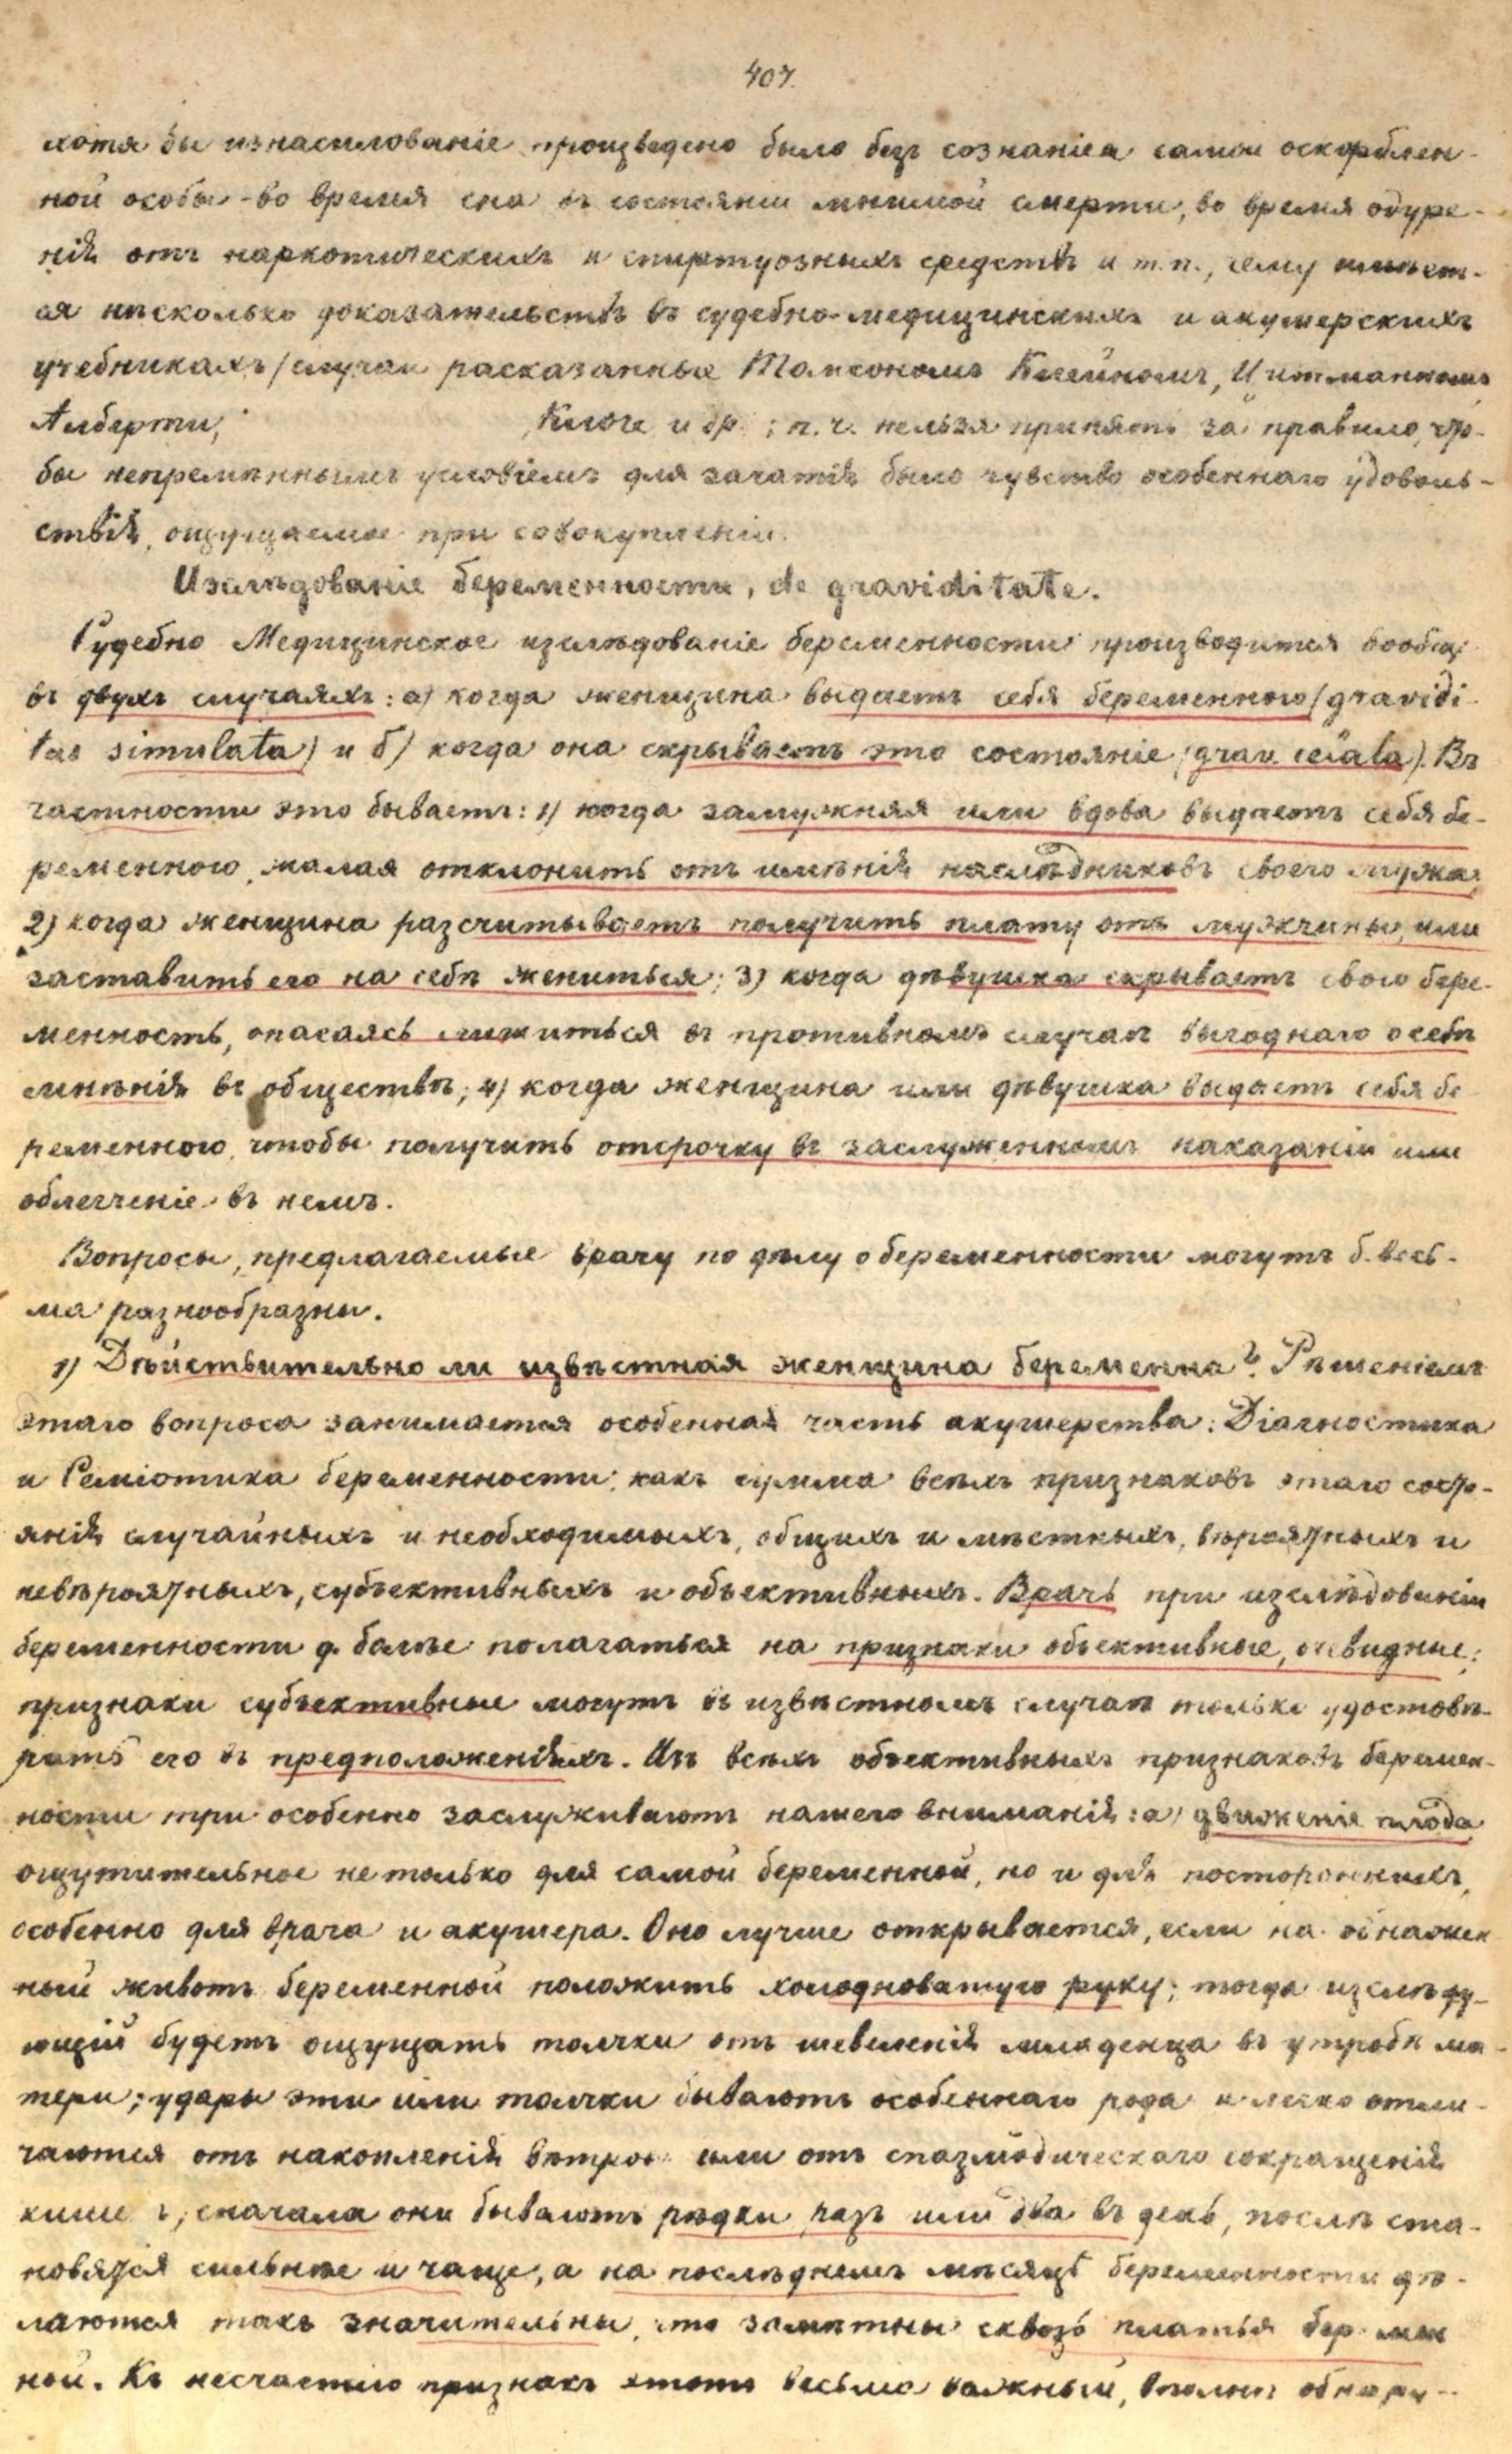 407.
хотя бы изнасилованіе произведено было безъ сознанія самой оскорблен-
ной особы - во время сна въ состояніи мнимой смерти, во время одуре-
нія отъ наркотическихъ и спиртуозныхъ средствъ и т.п., чему имѣет-
ся нѣсколько доказательствъ въ судебно-медицинскихъ и акушерскихъ
учебникахъ (случаи расказанные Клейномъ, Цитманномъ,
Алберти, Клюге и др.; п. ч. нельзя принять за правило, что-
бы непремѣннымъ условіемъ для зачатія было чувство особеннаго удоволь-
ствія, ощущаемое при совокупленіи.
Изслѣдованіе беременности, de graviditate.
Судебно Медицинское изслѣдованіе беременности производится вообще
въ двухъ случаяхъ: а) когда женщина выдаетъ себя беременною (gravidi-
tas simulata) и б) когда она скрываетъ это состояніе (grav. celata). Въ
частности это бываетъ: 1) когда замужняя или вдова выдаетъ себя бе-
ременною, желая отклонить отъ имѣнія наслѣдниковъ своего мужа;
2) когда женщина разсчитываетъ получить плату отъ мужчины, или
заставить его на себѣ жениться; 3) когда дѣвушка скрываетъ свою бере-
менность, опасаясь лишиться въ противномъ случаѣ выгоднаго о себѣ
мнѣнія въ обществѣ; 4) когда женщина или дѣвушка выдаетъ себя бе-
ременною, чтобы получить отсрочку въ заслуженномъ наказаніи или
облегченіе въ немъ.
Вопросы, предлагаемые врачу по дѣлу о беременности могутъ б. весь-
ма разнообразны.
1) Дѣйствительно ли извѣстная женщина беременна? Рѣшеніемъ
этаго вопроса занимается особенная часть акушерства: Діагностика
и Семіотика беременности, какъ сумма всѣхъ признаковъ этаго состо-
янія случайныхъ и необходимыхъ, общихъ и мѣстныхъ, вѣроятныхъ и
невѣроятныхъ, субъективныхъ и объективныхъ. Врачъ при изслѣдованіи
беременности д. болѣе полагаться на признаки объективные, очевидные;
признаки субъективные могутъ въ извѣстномъ случаѣ только удостовѣ-
рять его въ предположеніяхъ. Изъ всѣхъ объективныхъ признаковъ беремен-
ности три особенно заслуживаютъ нашего вниманія: а) движеніе плода
ощутительное не только для самой беременной, но и для постороннихъ,
особенно для врача и акушера. Оно лучше открывается, если на обнажен
ный животъ беременной положить холодноватую руку; тогда изслѣду-
ющій будетъ ощущать толчки отъ шевеленія младенца въ утробѣ ма-
тери; удары эти или толчки бываютъ особеннаго рода и легко отли-
чаются отъ накопленія вѣтров или отъ спазмодическаго сокращенія
кише ъ; сначала они бываютъ рѣдки, разъ или два въ день, послѣ ста-
новятся сильнѣе и чаще, а на послѣднемъ мѣсяцѣ беременности дѣ-
лаются такъ значительны, что замѣтны сквозь платья бер мен
ной. Къ несчастію признакъ этотъ весьма важный, вполнѣ обнару-